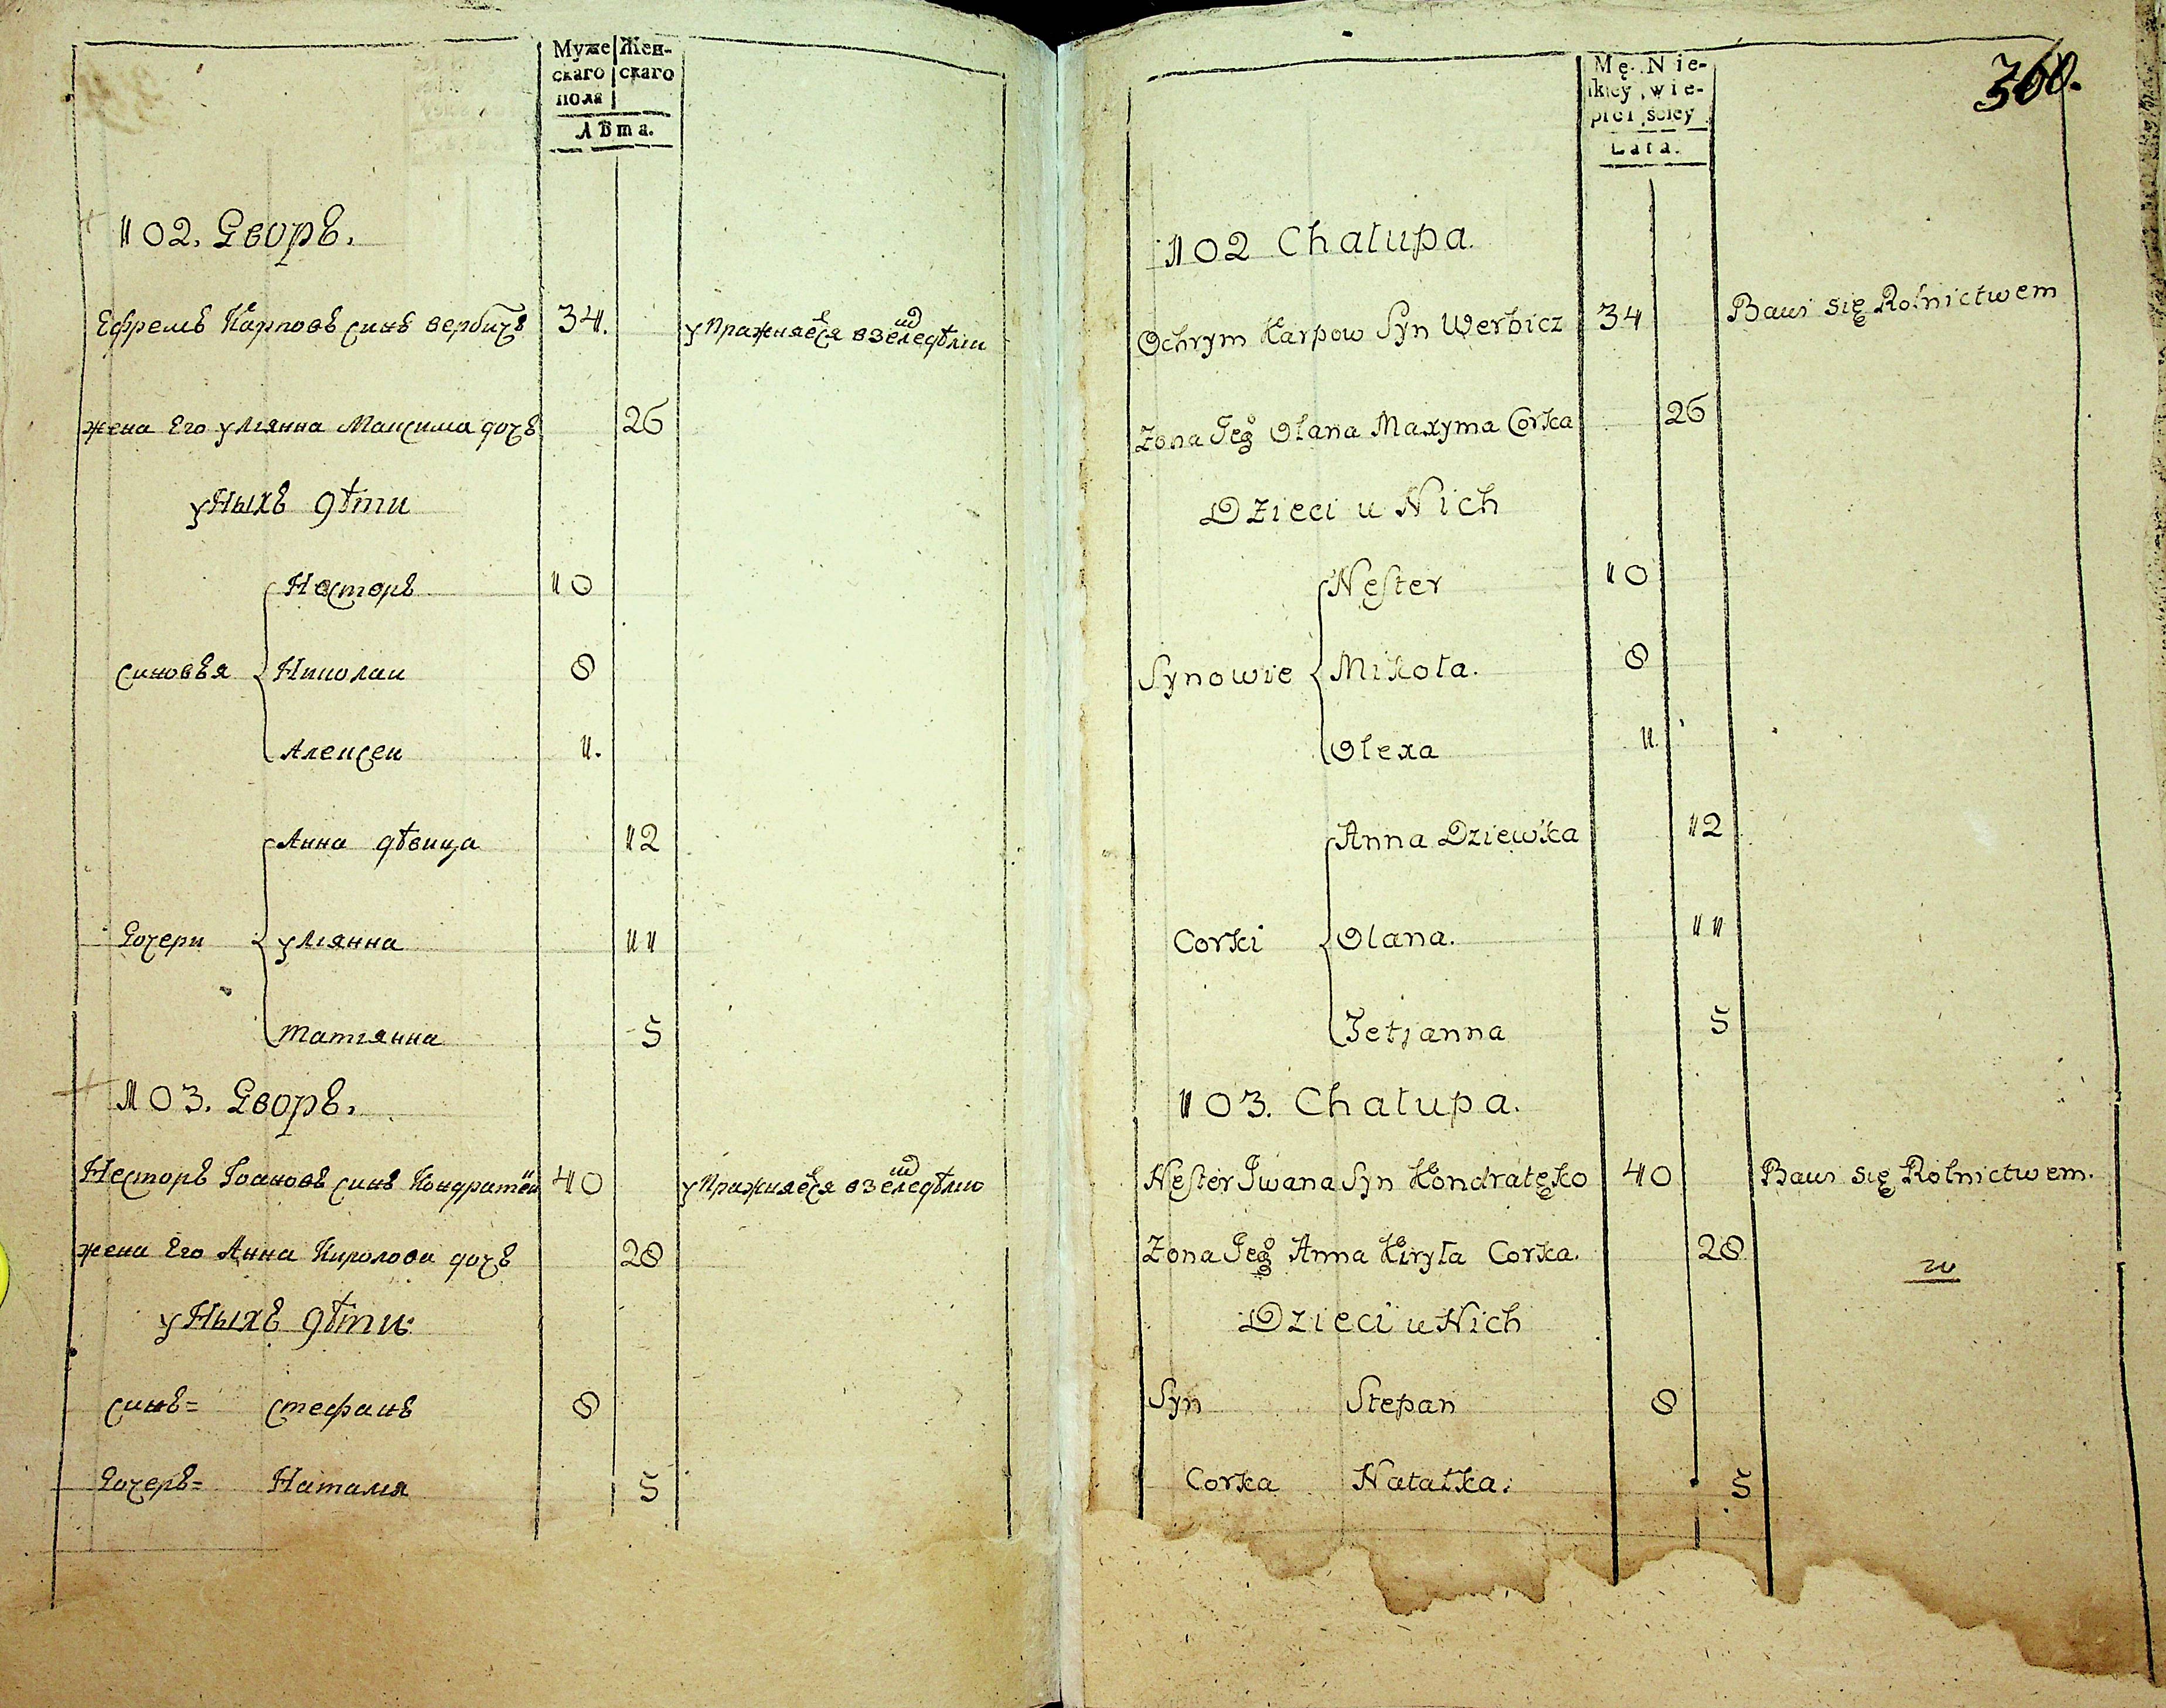 Муже Жен-
скаго скаго
пола
Лѣта.
102. Дворъ.
Ефремъ Карповъ синъ вербичъ 34. упражняется взеледѣліи
жена Его уліянна Максима дочъ 26
уНыхъ дѣти
Несторъ 10
синовья Николаи 8
Алексеи 1.
Анна дѣвица 12
Дочери уліянна 11
татіянна 5
103. Дворъ.
Несторъ Іоановъ синъ 40 упражняется взеледѣлию
жена Его Анна Кирилова дочъ 28
уНыхъ дѣти
синъ= стефанъ 8
Дочеръ= Наталия 5
360.
Mę. Nie-
skiey wie-
płci ściey
Lata.
102 Chałupa.
Ochrym Karpow Syn Werbicz 34 Bawi się Rolnictwem
Zona Jego Olana Maxyma Corka 26
Dzieci u Nich
Nester 10
Synowie Mikoła. 8
Olexa 1.
Anna Dziewka 12
Corki Olana. 11
Tetjanna 5
103. Chałupa.
Nester Iwana Syn Kondratęko 40 Bawi się Rolnictwem.
Zona Jego Anna Kiryła Corka. 28
Dzieci u Nich
Syn Stepan 8
Corka Natałka. 5